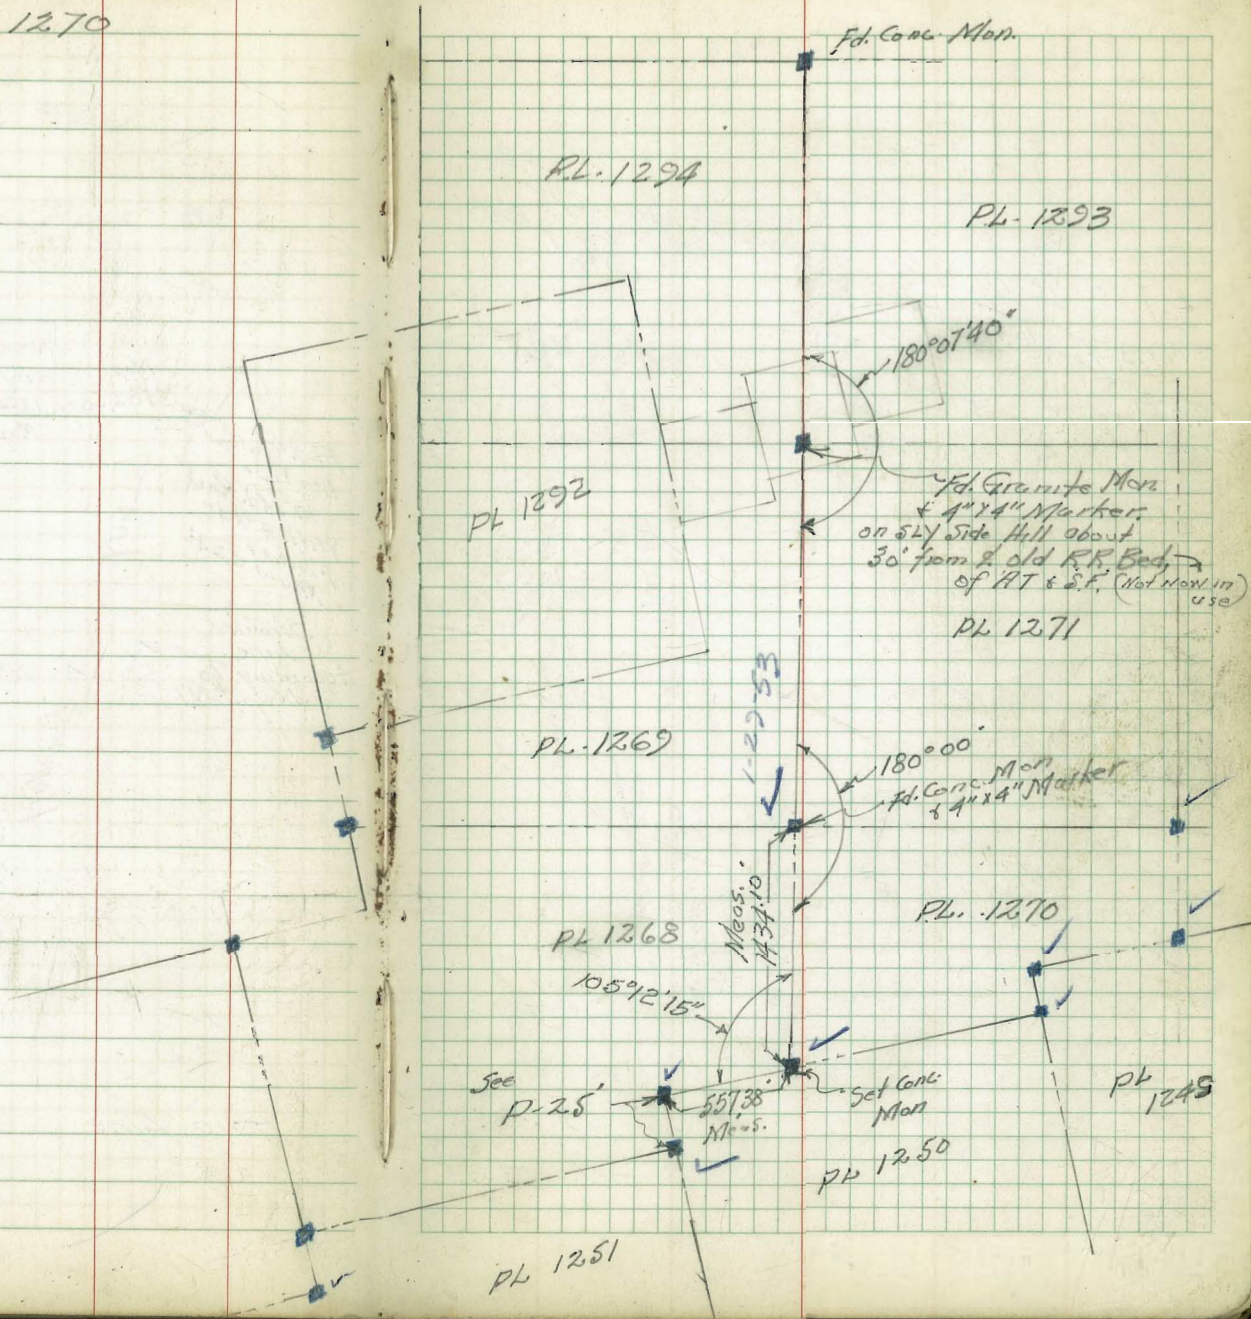 1270
Fd. Conc. Mon.
P.L. 1294
P.L. 1293
180°07'40"
PL 1292
Fd. Granite Mon
& 4"x4" Marker
on SLY Side Hill about
30' from ℄ old R.R. Bed,
of AT & S.F. (Not now in
use)
PL 1271
1-29-53
P.L. 1269
180°00'
Fd. Conc. Mon
& 4"x4" Marker
Meas.
1434.10'
P.L. 1270
PL 1268
105°12'15"
See
P-25
557.38'
Meas.
Set Conc.
Mon
PL
1249
PL 1250
PL 1251